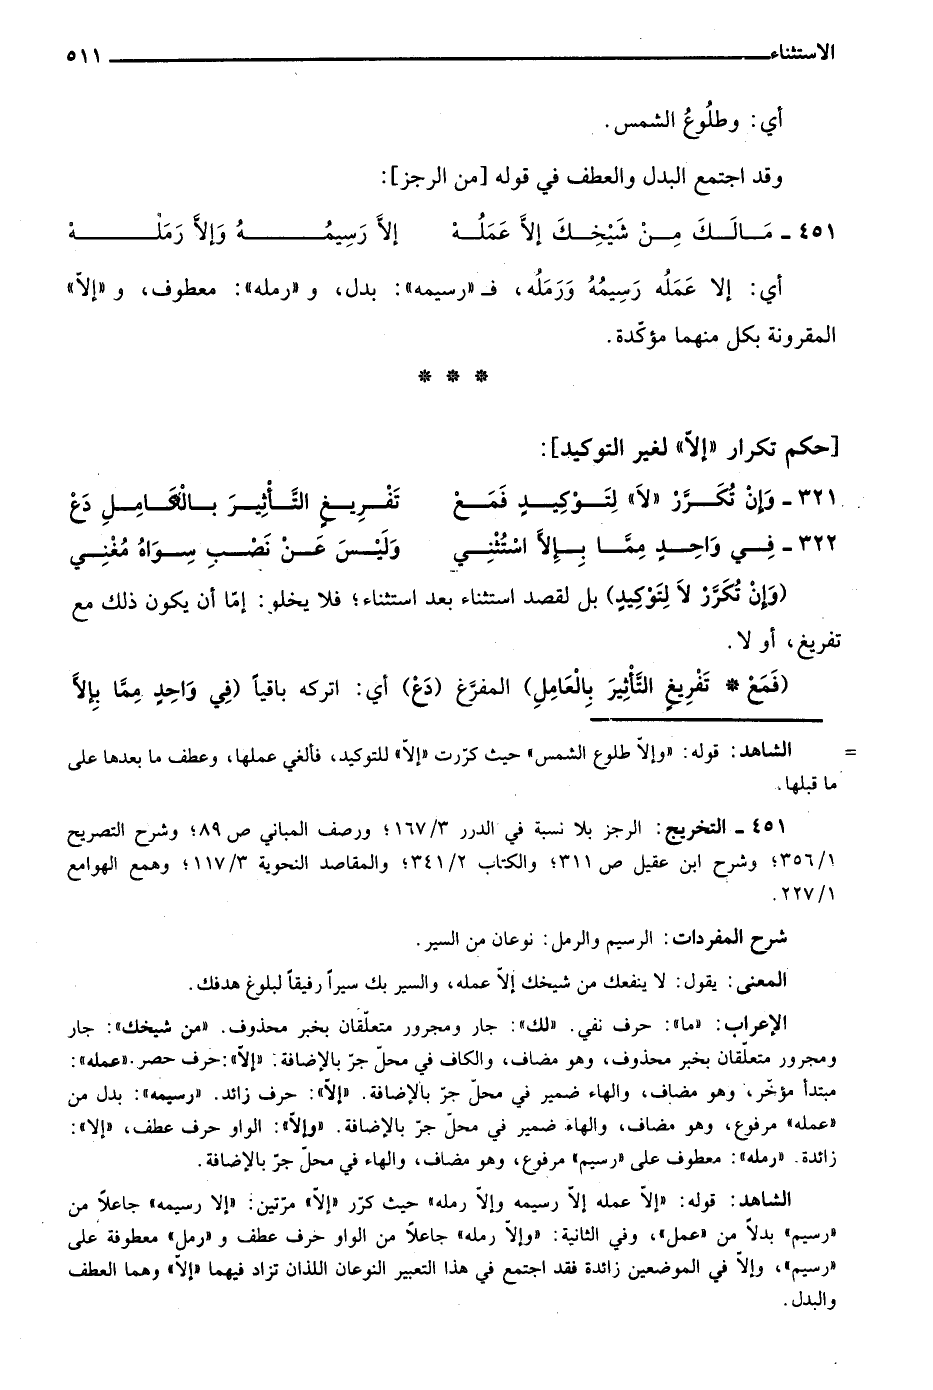 الاستثناء ٥١١
أي: وطلُوعُ الشمس.
وقد اجتمع البدل والعطف في قوله [من الرجز]:
٤٥١ - مَـالَـكَ مِـنْ شَيْخِـكَ إلاَّ عَمَلُـهْ إلاَّ رَسِيمُـهُ وَإلاَّ رَمَلُـهْ
أي: إلا عَمَلُه رَسِيمُهُ وَرَمَلُه، فـ «رسيمه»: بدل، و «رمله»: معطوف، و «إلاّ»
المقرونة بكل منهما مؤكّدة.
* * *
[حكم تكرار «إلاّ» لغير التوكيد]:
٣٢١ - وَإنْ تُكَـرَّرْ «لاَ» لِتَـوْكِيـدٍ فَمَـعْ تَفْـرِيـغٍ التَّـأْثِيـرَ بـالْعَـامِـلِ دَعْ
٣٢٢ - فِـي وَاحِـدٍ مِمَّـا بـإلاَّ اسْتُثْنِـي وَلَيْـسَ عَـنْ نَصْـبِ سِـوَاهُ مُغْنِـي
(وَإنْ تُكَرَّرْ لاَ لِتَوْكِيدٍ) بل لقصد استثناء بعد استثناء؛ فلا يخلو: إمّا أن يكون ذلك مع
تفريغ، أو لا.
(فَمَعْ * تَفْرِيغٍ التَّأْثِيرَ بِالْعَامِلِ) المفرَّغ (دَعْ) أي: اتركه باقياً (فِي وَاحِدٍ مِمَّا بِإلاَّ
= الشاهد: قوله: «وإلاّ طلوع الشمس» حيث كرّرت «إلاّ» للتوكيد، فألغي عملها، وعطف ما بعدها على
ما قبلها.
٤٥١ - التخريج: الرجز بلا نسبة في الدرر ١٦٧/٣؛ ورصف المباني ص ٨٩؛ وشرح التصريح
٣٥٦/١؛ وشرح ابن عقيل ص ٣١١؛ والكتاب ٣٤١/٢؛ والمقاصد النحوية ١١٧/٣؛ وهمع الهوامع
٢٢٧/١.
شرح المفردات: الرسيم والرمل: نوعان من السير.
المعنى: يقول: لا ينفعك من شيخك إلاّ عمله، والسير بك سيراً رفيقاً لبلوغ هدفك.
الإعراب: «ما»: حرف نفي. «لك»: جار ومجرور متعلّقان بخبر محذوف. «من شيخك»: جار
ومجرور متعلّقان بخبر محذوف، وهو مضاف، والكاف في محلّ جرّ بالإضافة. «إلاّ»: حرف حصر. «عمله»:
مبتدأ مؤخّر، وهو مضاف، والهاء ضمير في محلّ جرّ بالإضافة. «إلاّ»: حرف زائد. «رسيمه»: بدل من
«عمله» مرفوع، وهو مضاف، والهاء ضمير في محلّ جرّ بالإضافة. «وإلاّ»: الواو حرف عطف، «إلا»:
زائدة. «رمله»: معطوف على «رسيم» مرفوع، وهو مضاف، والهاء في محلّ جرّ بالإضافة.
الشاهد: قوله: «إلاّ عمله إلاّ رسيمه وإلاّ رمله» حيث كرّر «إلاّ» مرّتين: «إلا رسيمه» جاعلاً من
«رسيم» بدلاً من «عمل»، وفي الثانية: «وإلاّ رمله» جاعلاً من الواو حرف عطف و «رمل» معطوفة على
«رسيم»، وإلاّ في الموضعين زائدة فقد اجتمع في هذا التعبير النوعان اللذان تزاد فيهما «إلاّ» وهما العطف
والبدل.